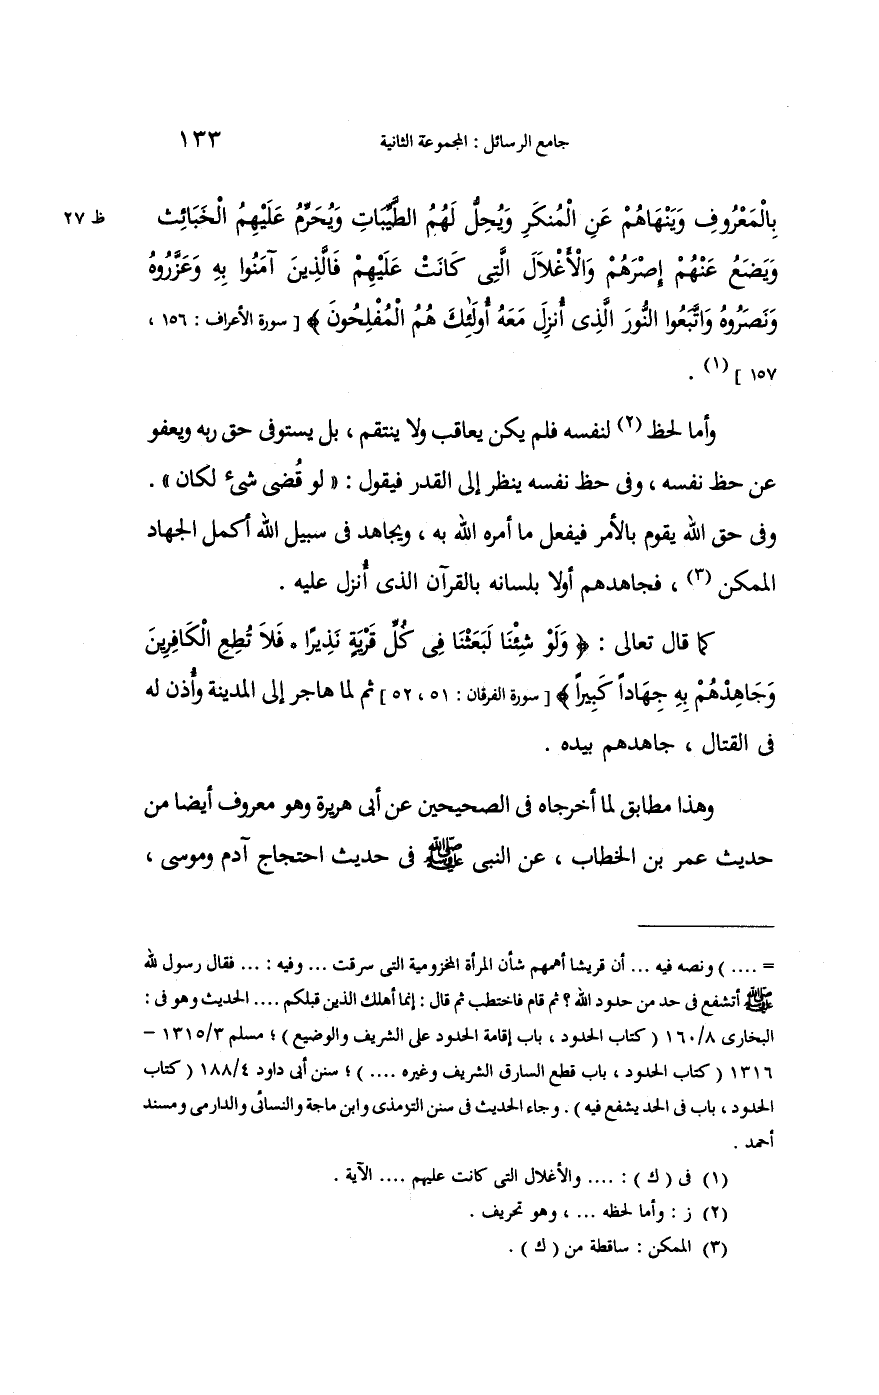 جامع الرسائل : المجموعة الثانية ١٣٣
بِالْمَعْرُوفِ وَيَنْهَاهُمْ عَنِ الْمُنكَرِ وَيُحِلُّ لَهُمُ الطَّيِّبَاتِ وَيُحَرِّمُ عَلَيْهِمُ الْخَبَائِثَ ظ ٢٧
وَيَضَعُ عَنْهُمْ إِصْرَهُمْ وَالْأَغْلَالَ الَّتِى كَانَتْ عَلَيْهِمْ فَالَّذِينَ آمَنُوا بِهِ وَعَزَّرُوهُ
وَنَصَرُوهُ وَاتَّبَعُوا النُّورَ الَّذِى أُنزِلَ مَعَهُ أُولَٰئِكَ هُمُ الْمُفْلِحُونَ ﴾ [ سورة الأعراف : ١٥٦ ،
١٥٧ ] (١) .
وأما لحظ (٢) لنفسه فلم يكن يعاقب ولا ينتقم ، بل يستوفى حق ربه ويعفو
عن حظ نفسه ، وفى حظ نفسه ينظر إلى القدر فيقول : « لو قُضى شىء لكان » .
وفى حق الله يقوم بالأمر فيفعل ما أمره الله به ، ويجاهد فى سبيل الله أكمل الجهاد
الممكن (٣) ، فجاهدهم أولا بلسانه بالقرآن الذى أُنزل عليه .
كما قال تعالى : ﴿ وَلَوْ شِئْنَا لَبَعَثْنَا فِى كُلِّ قَرْيَةٍ نَذِيرًا * فَلاَ تُطِعِ الْكَافِرِينَ
وَجَاهِدْهُمْ بِهِ جِهَاداً كَبِيراً ﴾ [ سورة الفرقان : ٥١ ، ٥٢ ] ثم لما هاجر إلى المدينة وأُذن له
فى القتال ، جاهدهم بيده .
وهذا مطابق لما أخرجاه فى الصحيحين عن أبى هريرة وهو معروف أيضا من
حديث عمر بن الخطاب ، عن النبى ﷺ فى حديث احتجاج آدم وموسى ،
= .... ) ونصه فيه ... أن قريشا أهمهم شأن المرأة المخزومية التى سرقت ... وفيه : ... فقال رسول لله
ﷺ أتشفع فى حد من حدود الله ؟ ثم قام فاختطب ثم قال : إنما أهلك الذين قبلكم .... الحديث وهو فى :
البخارى ١٦٠/٨ ( كتاب الحدود ، باب إقامة الحدود على الشريف والوضيع ) ؛ مسلم ١٣١٥/٣ –
١٣١٦ ( كتاب الحدود ، باب قطع السارق الشريف وغيره .... ) ؛ سنن أبى داود ١٨٨/٤ ( كتاب
الحدود ، باب فى الحد يشفع فيه ) . وجاء الحديث فى سنن الترمذى وابن ماجة والنسائى والدارمى ومسند
أحمد .
(١) فى ( ك ) : .... والأغلال التى كانت عليهم .... الآية .
(٢) ز : وأما لحظه ... ، وهو تحريف .
(٣) الممكن : ساقطة من ( ك ) .